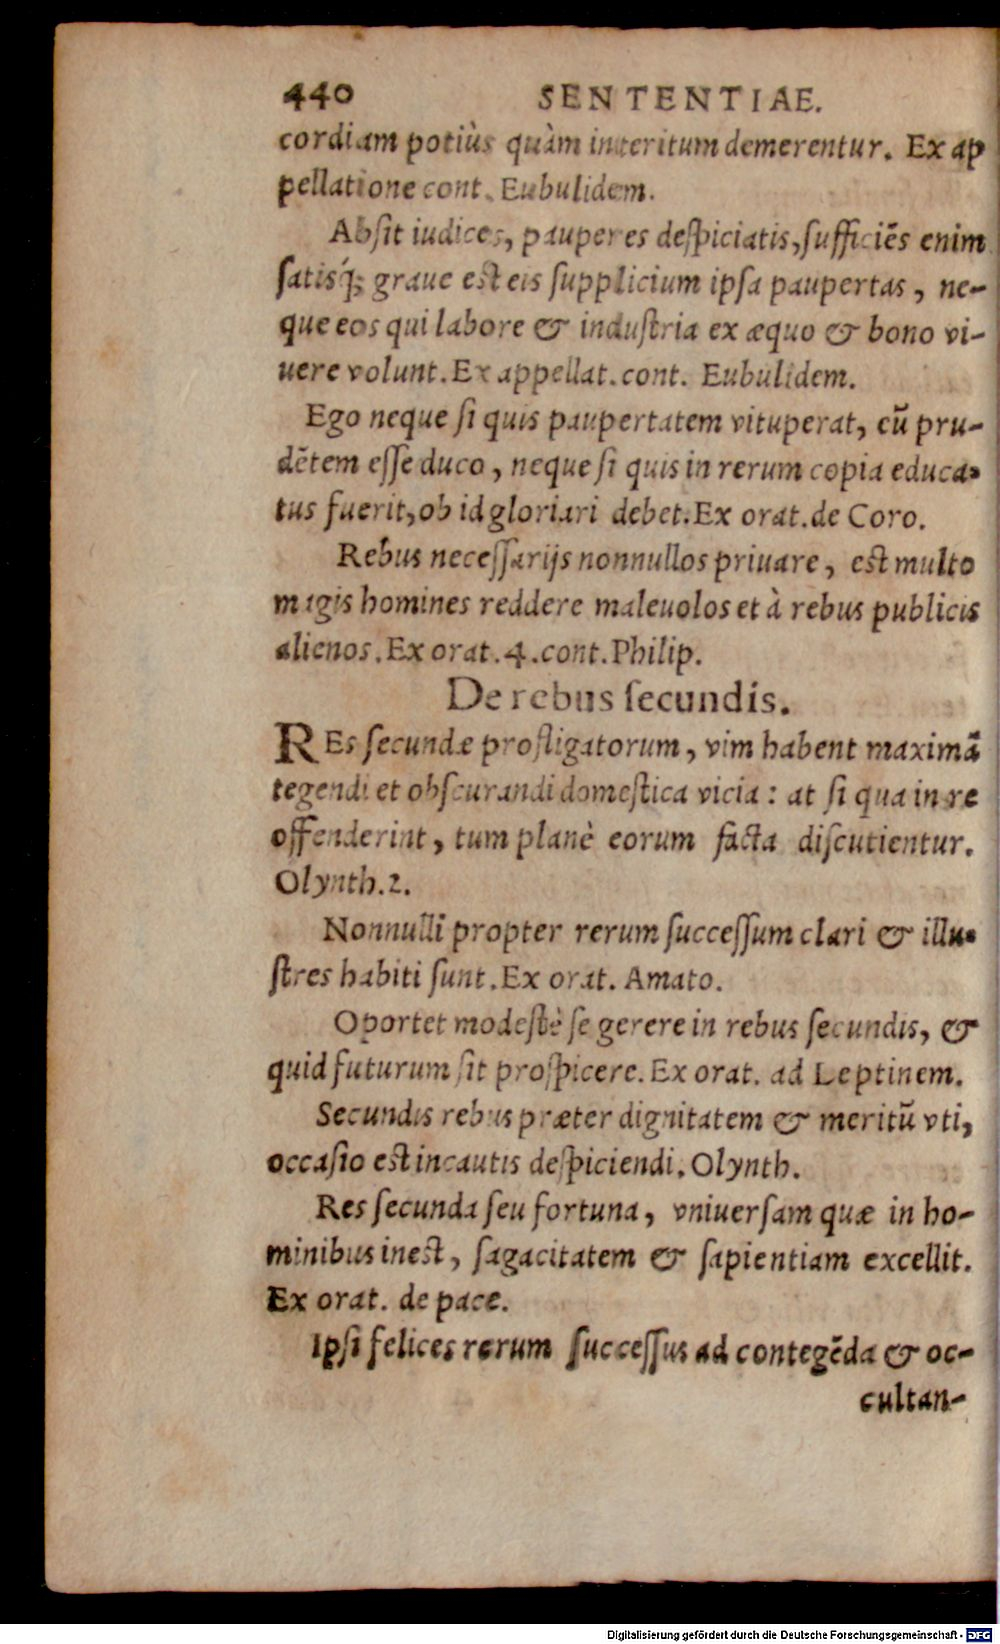 440 SENTENTIAE.
cordiam potiùs quàm interitum demerentur. Ex ap
pellatione cont. Eubulidem.
Absit iudices, pauperes despiciatis, sufficiẽs enim
satisq́; graue est eis supplicium ipsa paupertas, ne-
que eos qui labore & industria ex æquo & bono vi-
uere volunt. Ex appellat. cont. Eubulidem.
Ego neque si quis paupertatem vituperat, cũ pru-
dẽtem esse duco, neque si quis in rerum copia educa-
tus fuerit, ob id gloriari debet. Ex orat. de Coro.
Rebus necessarijs nonnullos priuare, est multo
magis homines reddere maleuolos et à rebus publicis
alienos. Ex orat. 4. cont. Philip.
De rebus secundis.
REs secundæ profligatorum, vim habent maximã
tegendi et obscurandi domestica vicia: at si qua in re
offenderint, tum planè eorum facta discutientur.
Olynth. 2.
Nonnulli propter rerum successum clari & illu-
stres habiti sunt. Ex orat. Amato.
Oportet modestè se gerere in rebus secundis, &
quid futurum sit prospicere. Ex orat. ad Leptinem.
Secundis rebus præter dignitatem & meritũ vti,
occasio est incautis despiciendi. Olynth.
Res secunda seu fortuna, vniuersam quæ in ho-
minibus inest, sagacitatem & sapientiam excellit.
Ex orat. de pace.
Ipsi felices rerum successus ad contegẽda & oc-
cultan-
Digitalisierung gefördert durch die Deutsche Forschungsgemeinschaft - DFG